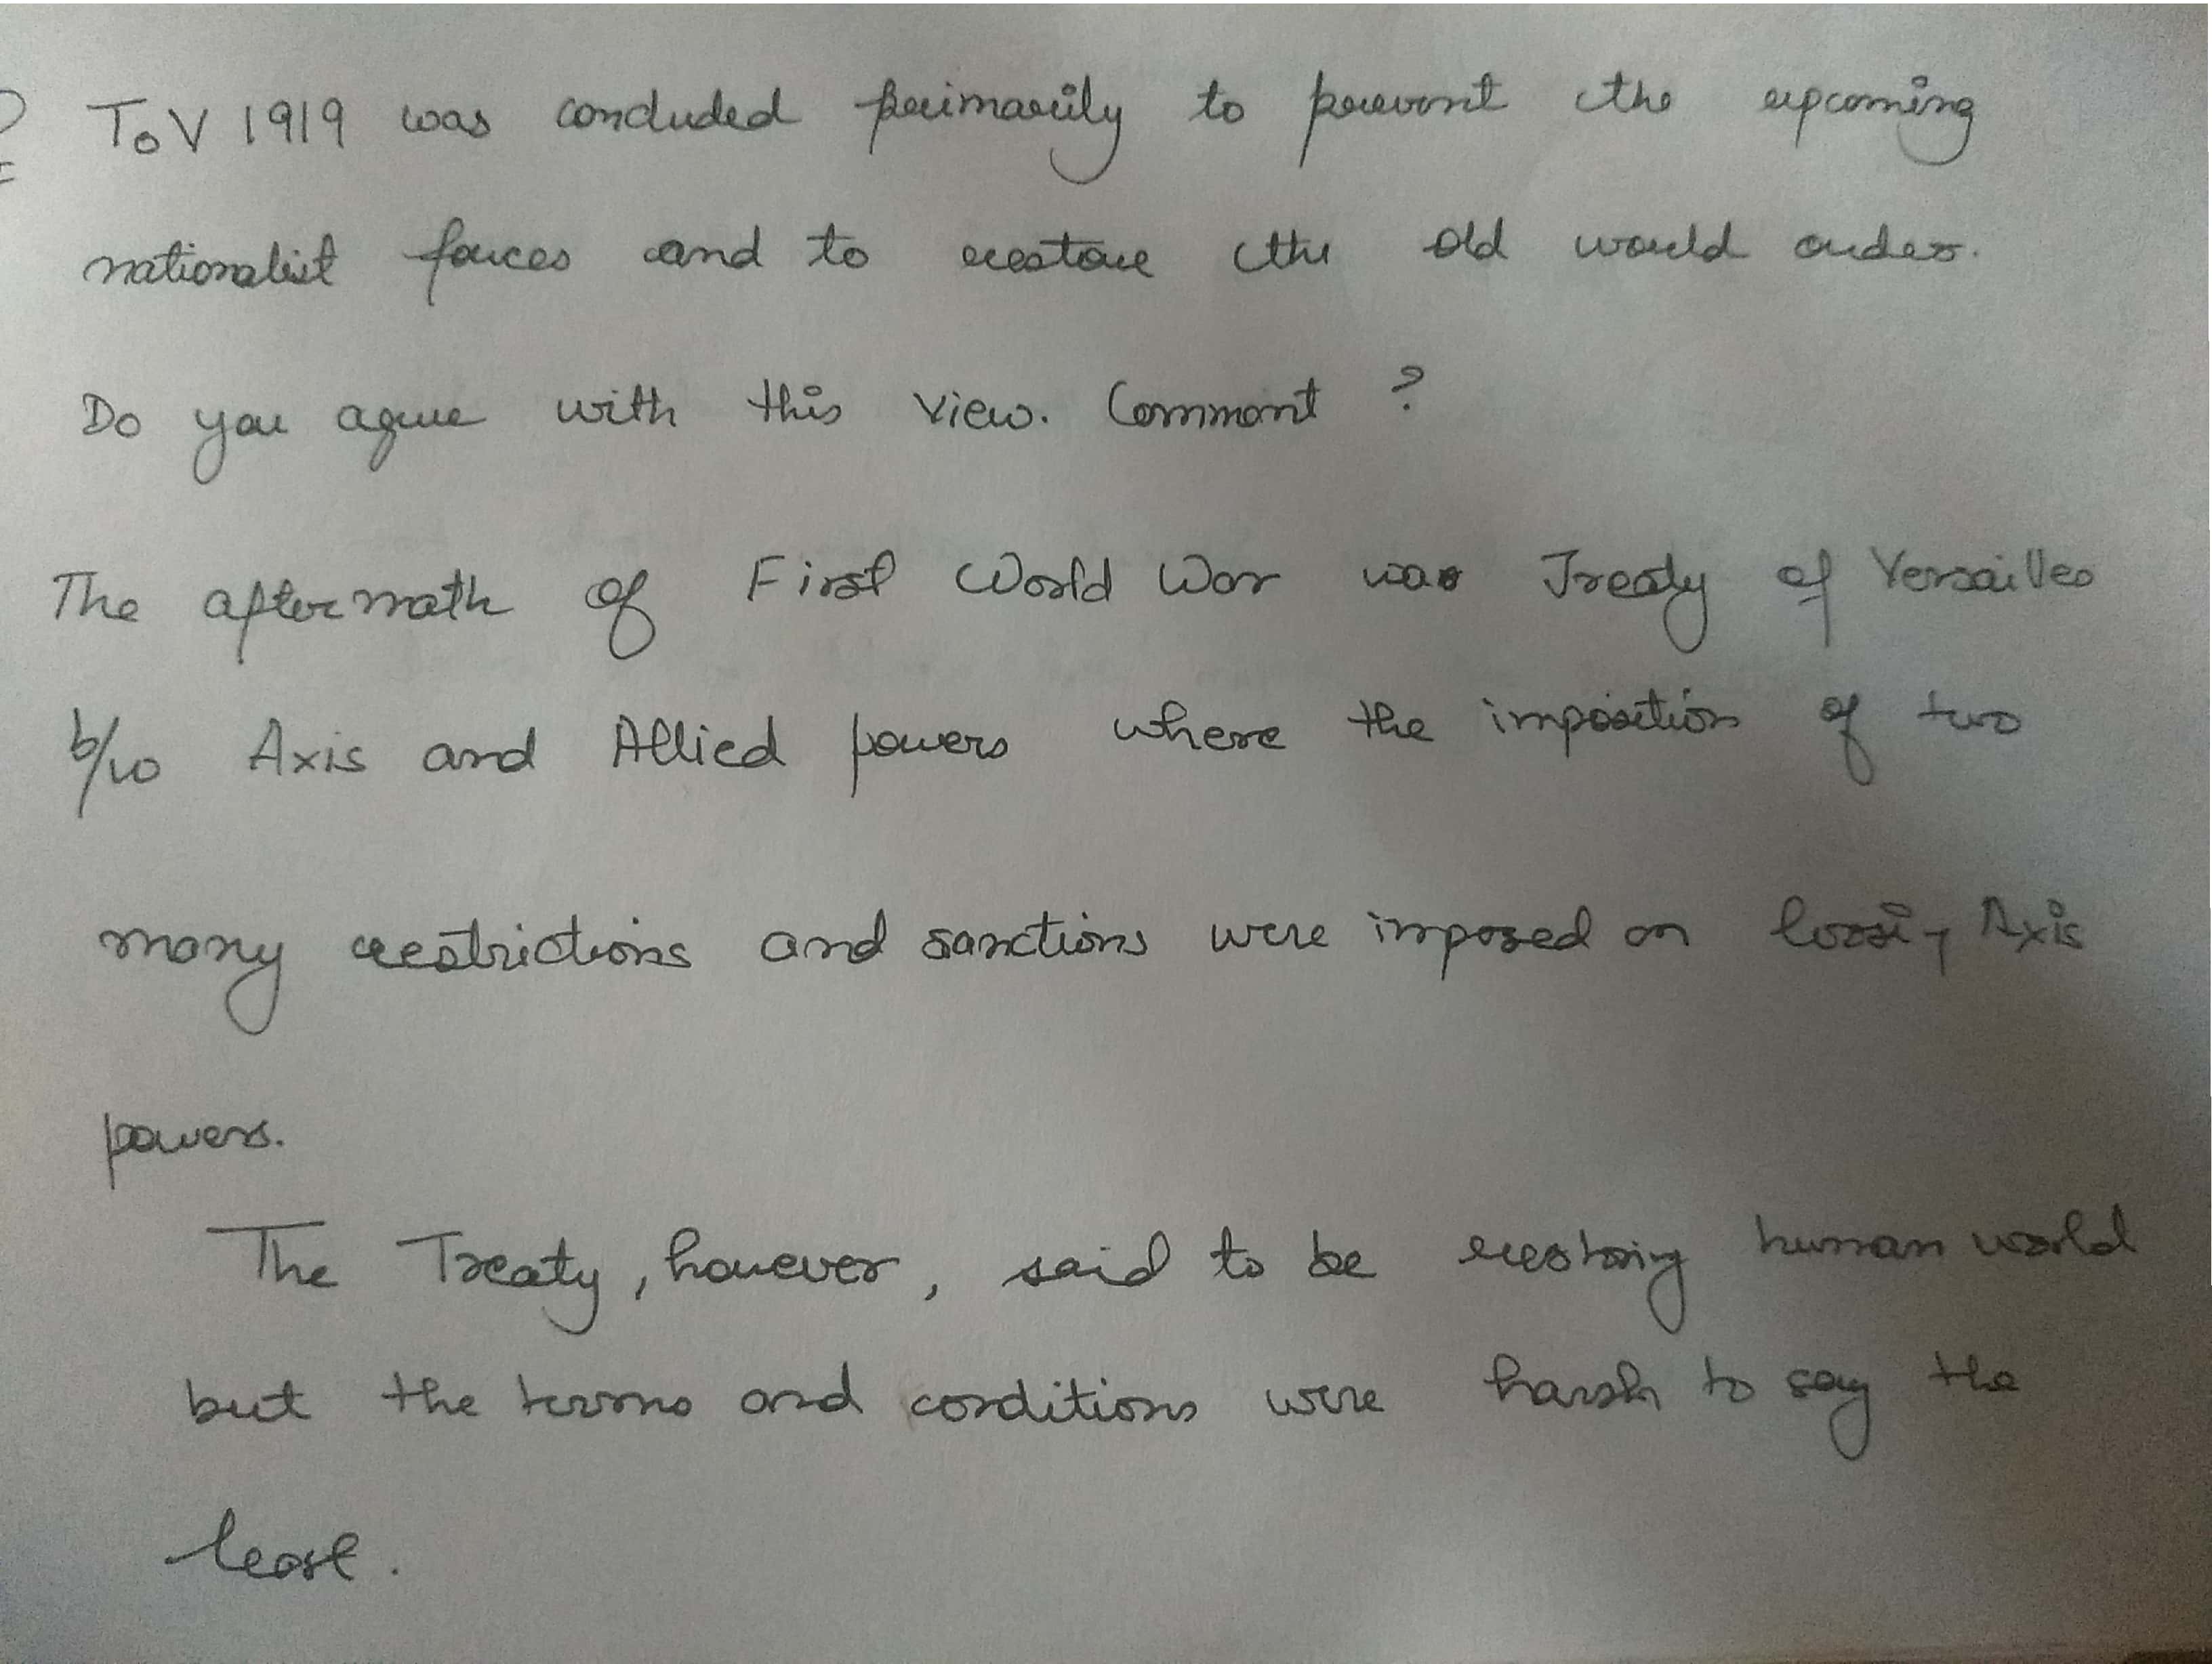 ToV 1919 was concluded primarily to prevent the upcoming
nationalist forces and to restore the old world order.
Do you agree with this view. Comment ?
The aftermath of First World War was Treaty of Versailles
b/w Axis and Allied powers where the imposition of two
many restrictions and sanctions were imposed on losing Axis
powers.
The Treaty, however, said to be restoring human world
but the terms and conditions were harsh to say the
least.